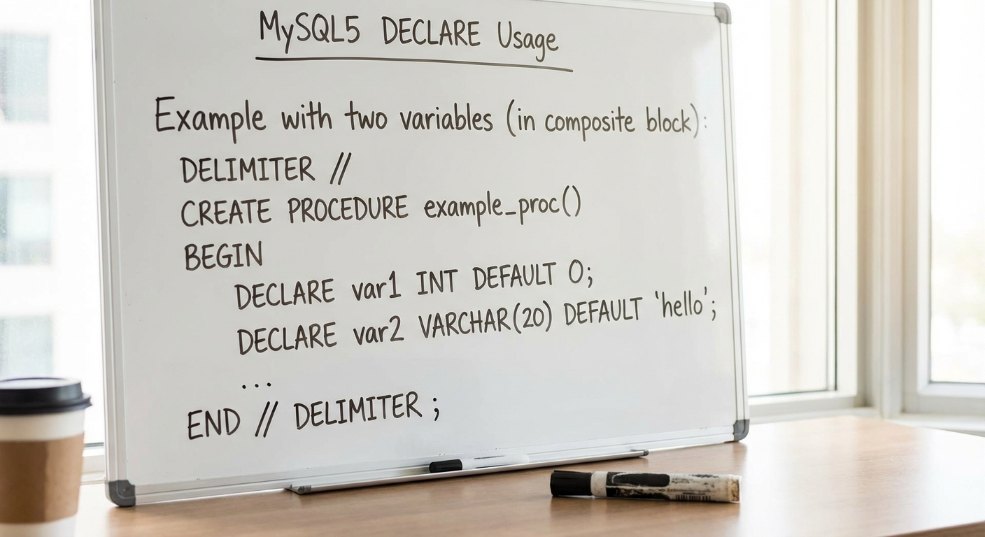 MySQL5 DECLARE Usage
Example with two variables (in composite block):
DELIMITER //
CREATE PROCEDURE example_proc()
BEGIN
DECLARE var1 INT DEFAULT 0;
DECLARE var2 VARCHAR(20) DEFAULT 'hello';
...
END // DELIMITER ;